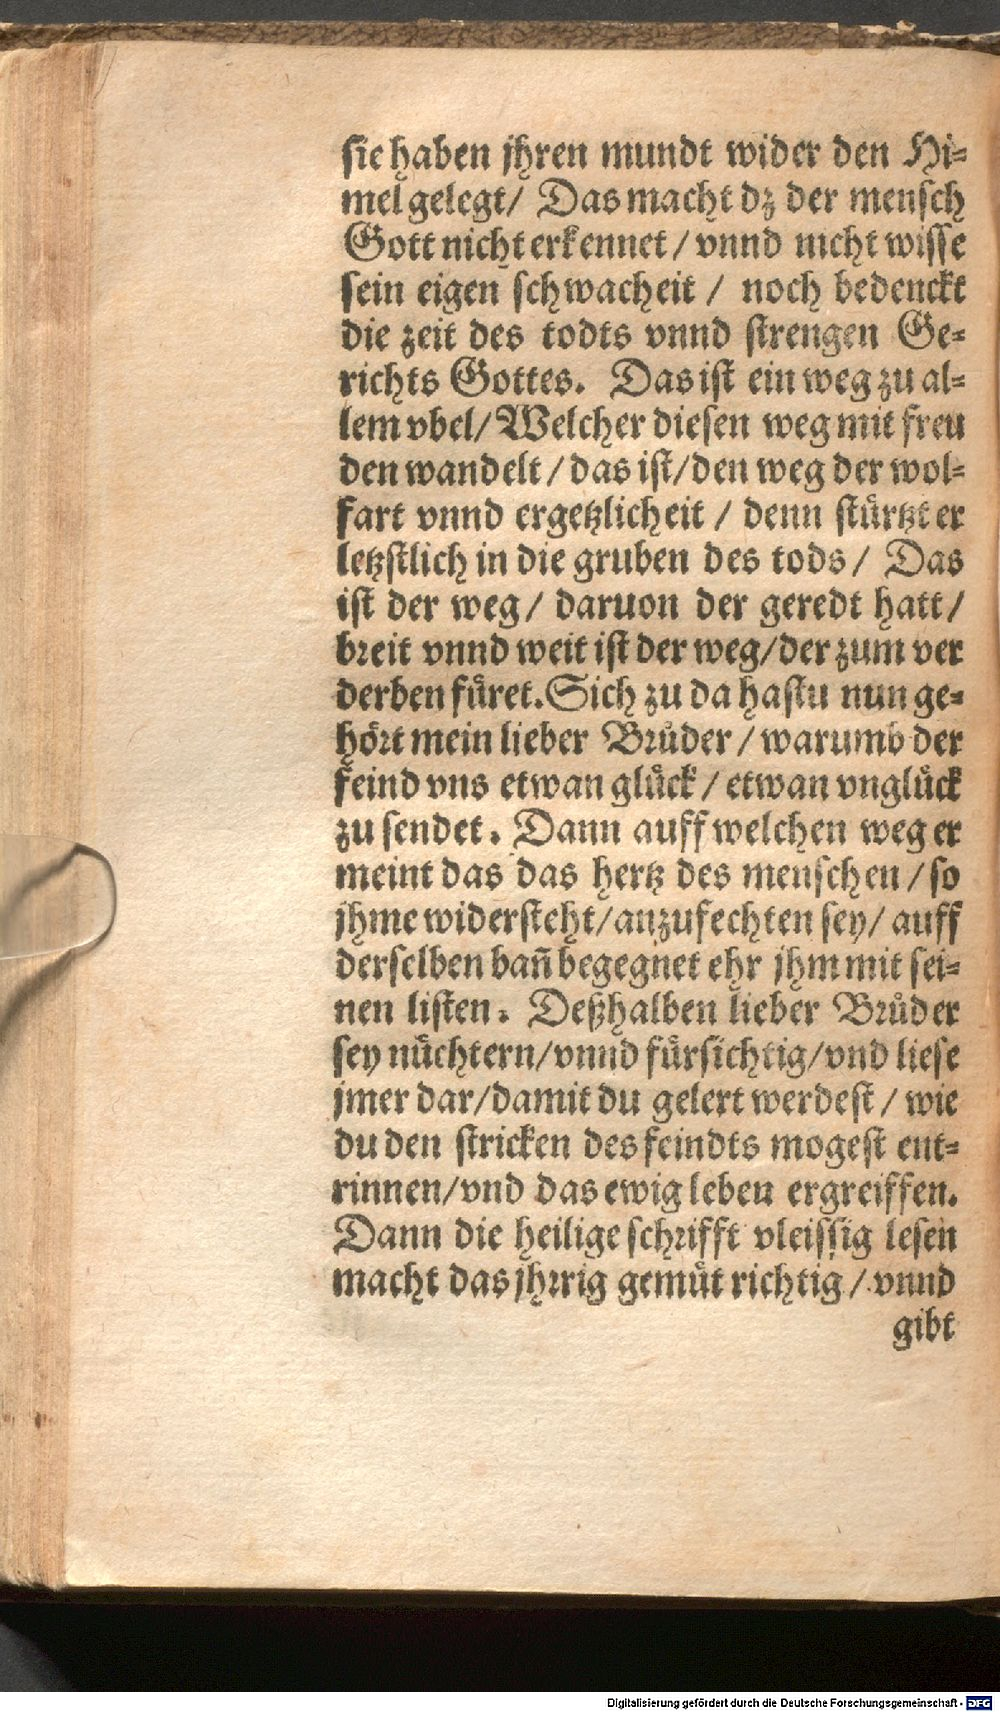 sie haben jhren mundt wider den Hi-
mel gelegt/ Das macht dz der mensch
Gott nicht erkennet/ vnnd nicht wisse
sein eigen schwacheit/ noch bedenckt
die zeit des todts vnnd strengen Ge-
richts Gottes. Das ist ein weg zu al-
lem vbel/ Welcher diesen weg mit freu
den wandelt/ das ist/ den weg der wol-
fart vnnd ergetzlicheit/ denn stürtzt er
letzstlich in die gruben des tods/ Das
ist der weg/ daruon der geredt hatt/
breit vnnd weit ist der weg/ der zum ver
derben füret. Sich zu da hastu nun ge-
hört mein lieber Brůder/ warumb der
feind vns etwan glück/ etwan vnglück
zu sendet. Dann auff welchen weg er
meint das das hertz des menschen/ so
jhme widersteht/ anzufechten sey/ auff
derselben bañ begegnet ehr jhm mit sei-
nen listen. Deßhalben lieber Brůder
sey nüchtern/ vnnd fürsichtig/ vnd liese
jmer dar/ damit du gelert werdest/ wie
du den stricken des feindts mogest ent-
rinnen/ vnd das ewig leben ergreiffen.
Dann die heilige schrifft vleissig lesen
macht das jhrrig gemüt richtig/ vnnd
gibt
Digitalisierung gefördert durch die Deutsche Forschungsgemeinschaft - DFG